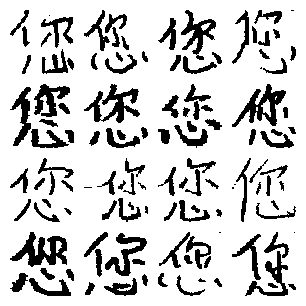 您您您您
您您您您
您您您您
您您您您